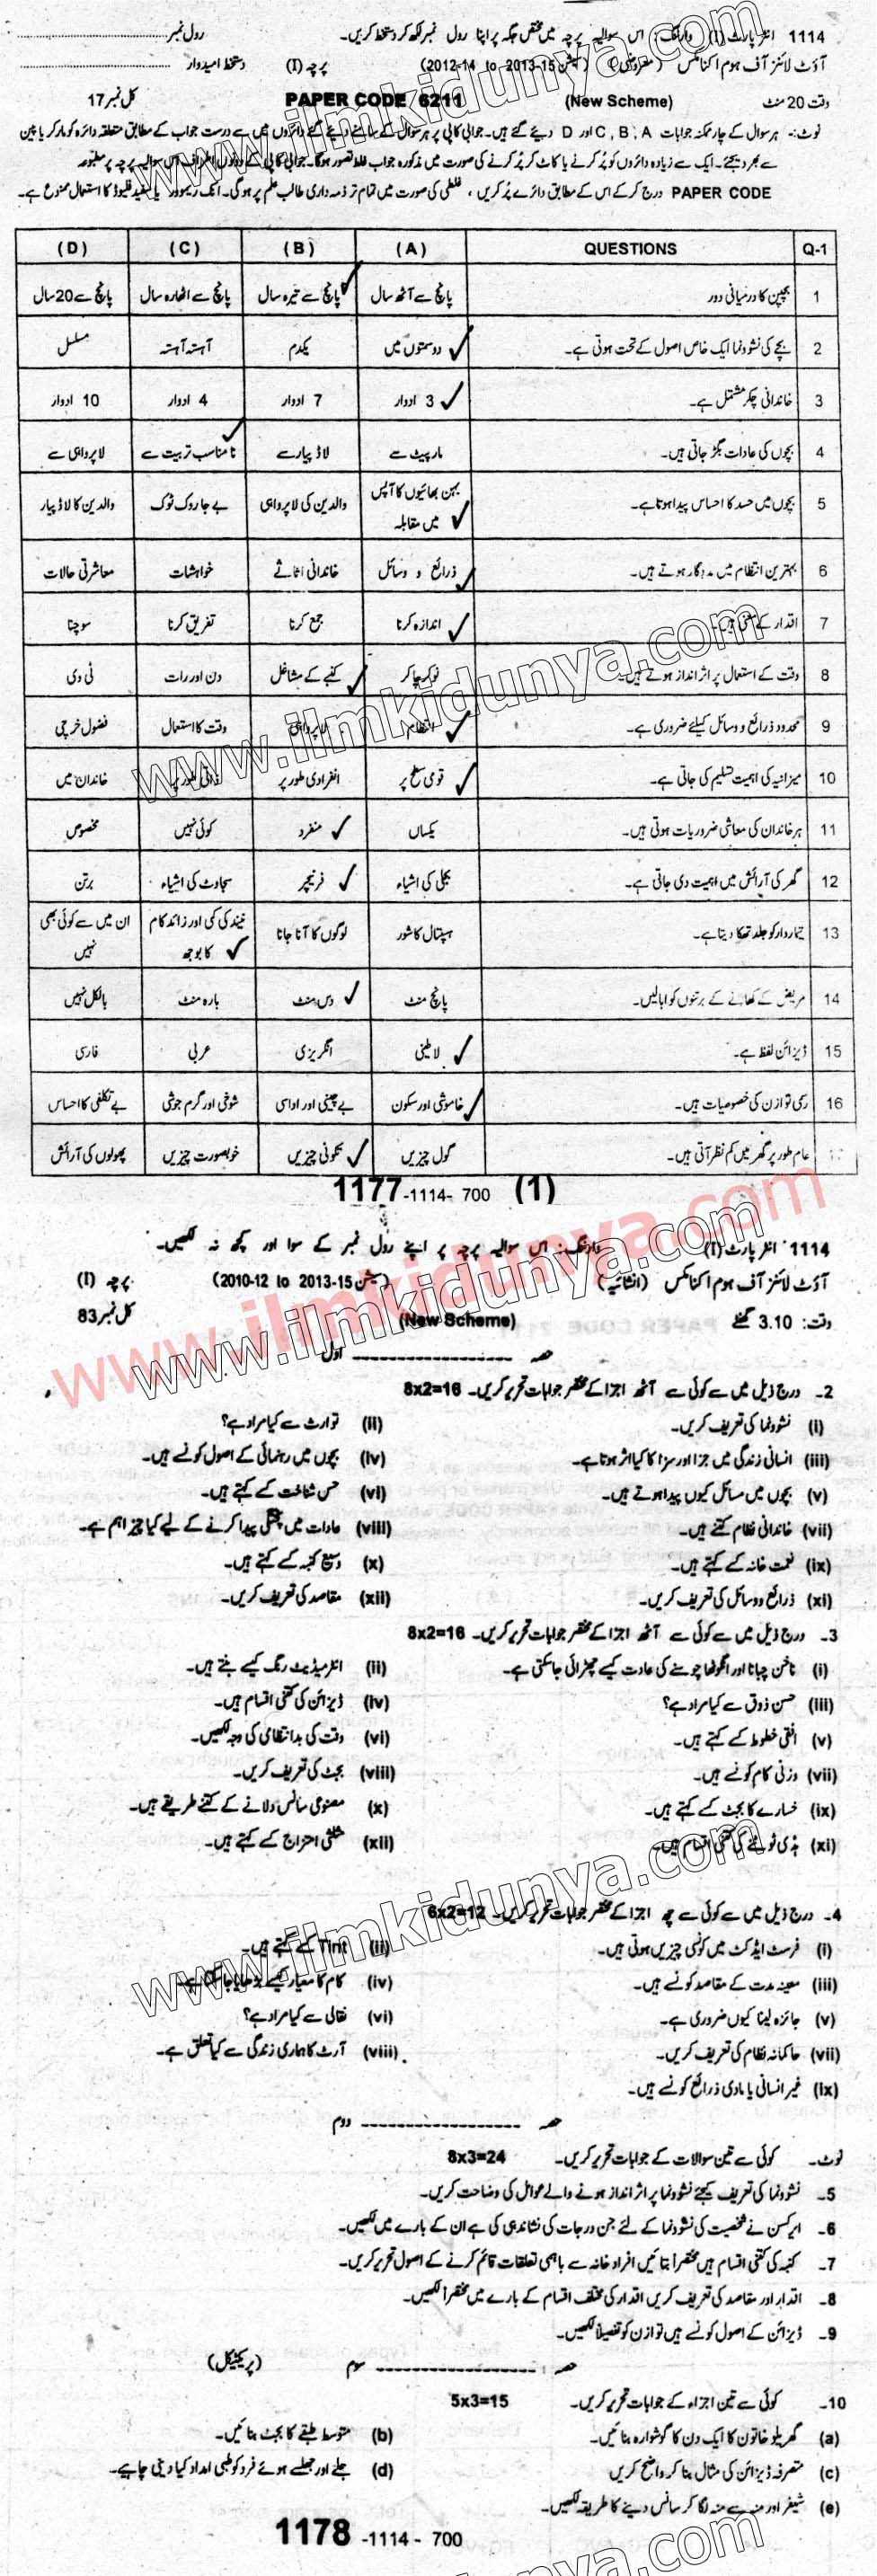 1114 انٹر پارٹ (I) وارننگ: اس سوالیہ پرچہ میں مختص جگہ پر اپنا رول نمبر لکھ کر دستخط کریں۔ رول نمبر
آؤٹ لائنز آف ہوم اکنامکس (معروضی) (سیشن 15-2013 to 14-2012) پرچہ (I) دستخط امیدوار
وقت 20 منٹ (New Scheme) PAPER CODE 6211 کل نمبر 17
نوٹ:- ہر سوال کے چار ممکنہ جوابات A ,B ,C اور D دیئے گئے ہیں۔ جوابی کاپی پر ہر سوال کے سامنے دیئے گئے دائروں میں سے درست جواب کے مطابق متعلقہ دائرہ کو مارکر یا پین
سے بھر دیجئے۔ ایک سے زیادہ دائروں کو پُر کرنے یا کاٹ کر پُر کرنے کی صورت میں مذکورہ جواب غلط تصور ہوگا۔ جوابی کاپی کے دونوں اطراف اس سوالیہ پرچہ پر مطبوعہ
PAPER CODE درج کر کے اس کے مطابق دائرے پُر کریں، غلطی کی صورت میں تمام تر ذمہ داری طالب علم پر ہوگی۔ انک ریموور یا سفید فلیوڈ کا استعمال ممنوع ہے۔
Q-1 QUESTIONS (A) (B) (C) (D)
1 بچپن کا درمیانی دور پانچ سے آٹھ سال پانچ سے تیرہ سال پانچ سے اٹھارہ سال پانچ سے 20 سال
2 بچے کی نشوونما ایک خاص اصول کے تحت ہوتی ہے۔ دو سمتوں میں یکدم آہستہ آہستہ مسلسل
3 خاندانی چکر مشتمل ہے۔ 3 ادوار 7 ادوار 4 ادوار 10 ادوار
4 بچوں کی عادات بگڑ جاتی ہیں۔ مار پیٹ سے لاڈ پیار سے نامناسب تربیت سے لاپرواہی سے
5 بچوں میں حسد کا احساس پیدا ہوتا ہے۔ بہن بھائیوں کا آپس میں مقابلہ والدین کی لاپرواہی بے جا روک ٹوک والدین کا لاڈ پیار
6 بہترین انتظام میں مددگار ہوتے ہیں۔ ذرائع و وسائل خاندانی اثاثے خواہشات معاشرتی حالات
7 اقدار کے معنی ہیں۔ اندازہ کرنا جمع کرنا تفریق کرنا سوچنا
8 وقت کے استعمال پر اثر انداز ہوتے ہیں۔ نوکر چاکر کنبے کے مشاغل دن اور رات ٹی وی
9 محدود ذرائع و وسائل کیلئے ضروری ہے۔ انتظام لاپرواہی وقت کا استعمال فضول خرچی
10 میزانیہ کی اہمیت تسلیم کی جاتی ہے۔ قومی سطح پر انفرادی طور پر ذاتی طور پر خاندان میں
11 ہر خاندان کی معاشی ضروریات ہوتی ہیں۔ یکساں منفرد کوئی نہیں مخصوص
12 گھر کی آرائش میں اہمیت دی جاتی ہے۔ بجلی کی اشیاء فرنیچر سجاوٹ کی اشیاء برتن
13 تیماردار کو جلد تھکا دیتا ہے۔ ہسپتال کا شور لوگوں کا آنا جانا نیند کی کمی اور زائد کام کا بوجھ ان میں سے کوئی بھی نہیں
14 مریض کے کھانے کے برتنوں کو ابالیں۔ پانچ منٹ دس منٹ بارہ منٹ بالکل نہیں
15 ڈیزائن لفظ ہے۔ لاطینی انگریزی عربی فارسی
16 رسمی توازن کی خصوصیات ہیں۔ خاموشی اور سکون بے چینی اور اداسی شوخی اور گرم جوشی بے تکلفی کا احساس
17 عام طور پر گھر میں کم نظر آتی ہیں۔ گول چیزیں تکونی چیزیں خوبصورت چیزیں پھولوں کی آرائش
1177-1114- 700 (1)
1114 انٹر پارٹ (I) وارننگ: اس سوالیہ پرچہ پر اپنے رول نمبر کے سوا اور کچھ نہ لکھیں۔
آؤٹ لائنز آف ہوم اکنامکس (انشائیہ) (سیشن 15-2013 to 12-2010) پرچہ (I)
وقت: 3.10 گھنٹے (New Scheme) کل نمبر 83
حصہ اول
2۔ درج ذیل میں سے کوئی سے آٹھ اجزا کے مختصر جوابات تحریر کریں۔ 8x2=16
(i) نشوونما کی تعریف کریں۔ (ii) توارث سے کیا مراد ہے؟
(iii) انسانی زندگی میں جزا اور سزا کا کیا اثر ہوتا ہے۔ (iv) بچوں میں رہنمائی کے اصول کونسے ہیں۔
(v) بچوں میں مسائل کیوں پیدا ہوتے ہیں۔ (vi) حس شناخت کسے کہتے ہیں۔
(vii) خاندانی نظام کتنے ہیں۔ (viii) عادات میں پختگی پیدا کرنے کے لیے کیا چیز اہم ہے۔
(ix) نعمت خانہ کسے کہتے ہیں۔ (x) وسیع کنبہ کسے کہتے ہیں۔
(xi) ذرائع و وسائل کی تعریف کریں۔ (xii) مقاصد کی تعریف کریں۔
3۔ درج ذیل میں سے کوئی سے آٹھ اجزا کے مختصر جوابات تحریر کریں۔ 8x2=16
(i) ناخن چبانا اور انگوٹھا چوسنے کی عادت کیسے چھڑائی جاسکتی ہے۔ (ii) انٹرمیڈیٹ رنگ کیسے بنتے ہیں۔
(iii) حسن ذوق سے کیا مراد ہے؟ (iv) ڈیزائن کی کتنی اقسام ہیں۔
(v) افقی خطوط کسے کہتے ہیں۔ (vi) وقت کی بدانتظامی کی وجہ لکھیں۔
(vii) وزنی کام کونسے ہیں۔ (viii) بجٹ کی تعریف کریں۔
(ix) خسارے کا بجٹ کسے کہتے ہیں۔ (x) مصنوعی سانس دلانے کے کتنے طریقے ہیں۔
(xi) ہڈی ٹوٹنے کی کتنی اقسام ہیں۔ (xii) مثلثی امتزاج کسے کہتے ہیں۔
4۔ درج ذیل میں سے کوئی سے چھ اجزا کے مختصر جوابات تحریر کریں۔ 6x2=12
(i) فرسٹ ایڈ کٹ میں کونسی چیزیں ہوتی ہیں۔ (ii) Tint کسے کہتے ہیں۔
(iii) معینہ مدت کے مقاصد کونسے ہیں۔ (iv) کام کا معیار کیسے بڑھایا جاسکتا ہے۔
(v) جائزہ لینا کیوں ضروری ہے۔ (vi) نقالی سے کیا مراد ہے؟
(vii) حاکمانہ نظام کی تعریف کریں۔ (viii) آرٹ کا ہماری زندگی سے کیا تعلق ہے۔
(ix) غیر انسانی یا مادی ذرائع کونسے ہیں۔
حصہ دوم
نوٹ۔ کوئی سے تین سوالات کے جوابات تحریر کریں۔ 8x3=24
5۔ نشوونما کی تعریف کیجئے نشوونما پر اثر انداز ہونے والے عوامل کی وضاحت کریں۔
6۔ ایرکسن نے شخصیت کی نشوونما کے لئے جن درجات کی نشاندہی کی ہے ان کے بارے میں لکھیں۔
7۔ کنبہ کی کتنی اقسام ہیں مختصراً بتائیں افراد خانہ سے باہمی تعلقات قائم کرنے کے اصول تحریر کریں۔
8۔ اقدار اور مقاصد کی تعریف کریں اقدار کی مختلف اقسام کے بارے میں مختصراً لکھیں۔
9۔ ڈیزائن کے اصول کونسے ہیں توازن کو تفصیلاً لکھیں۔
حصہ سوم (پریکٹیکل)
10۔ کوئی سے تین اجزاء کے جوابات تحریر کریں۔ 5x3=15
(a) گھریلو خاتون کا ایک دن کا گوشوارہ بنائیں۔ (b) متوسط طبقے کا بجٹ بنائیں۔
(c) متصرفہ ڈیزائن کی مثال بنا کر واضح کریں (d) جلے اور جھلسے ہوئے فرد کو طبی امداد کیا دینی چاہیے۔
(e) شیفر اور منہ سے منہ لگا کر سانس دینے کا طریقہ لکھیں۔
1178 -1114 - 700
www.ilmkidunya.com